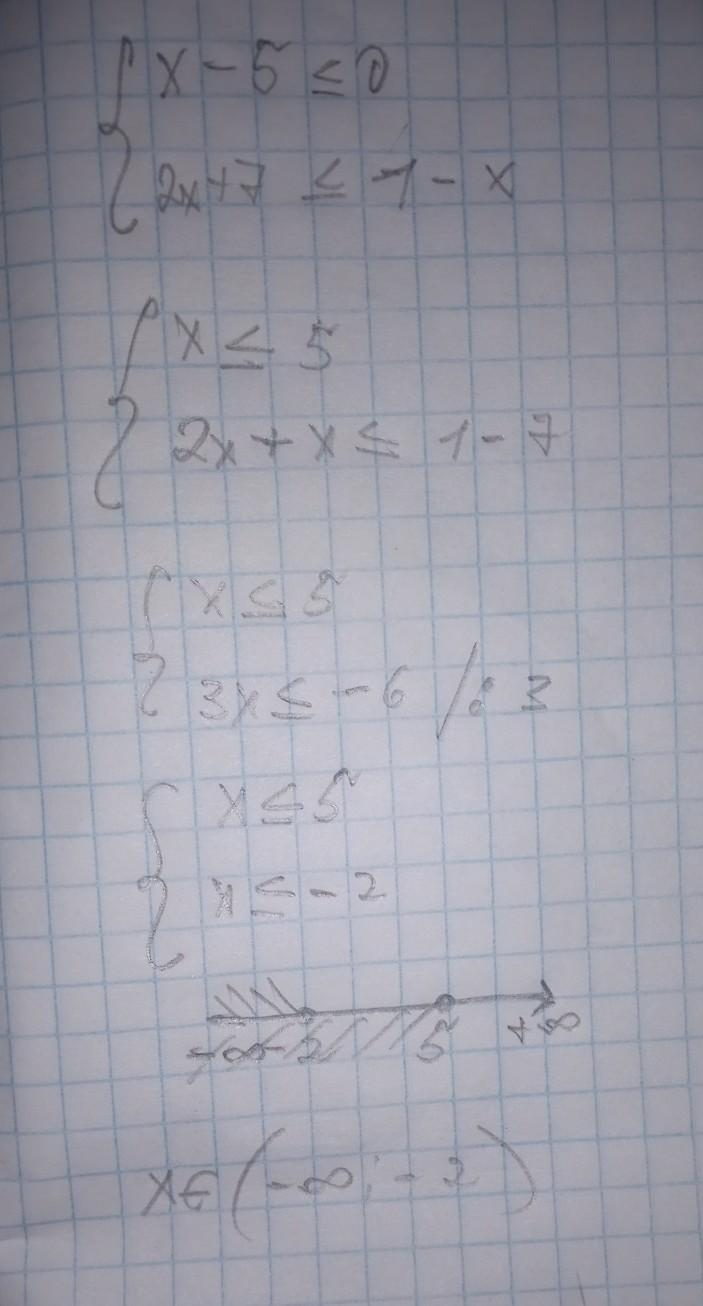 x - 5 ≤ 0
2x+7 ≤ 1 - x
x ≤ 5
2x + x ≤ 1 - 7
x ≤ 5
3x ≤ -6 /: 3
x ≤ 5
x ≤ -2
-∞ -2 5 +∞
x∈(-∞; -2)